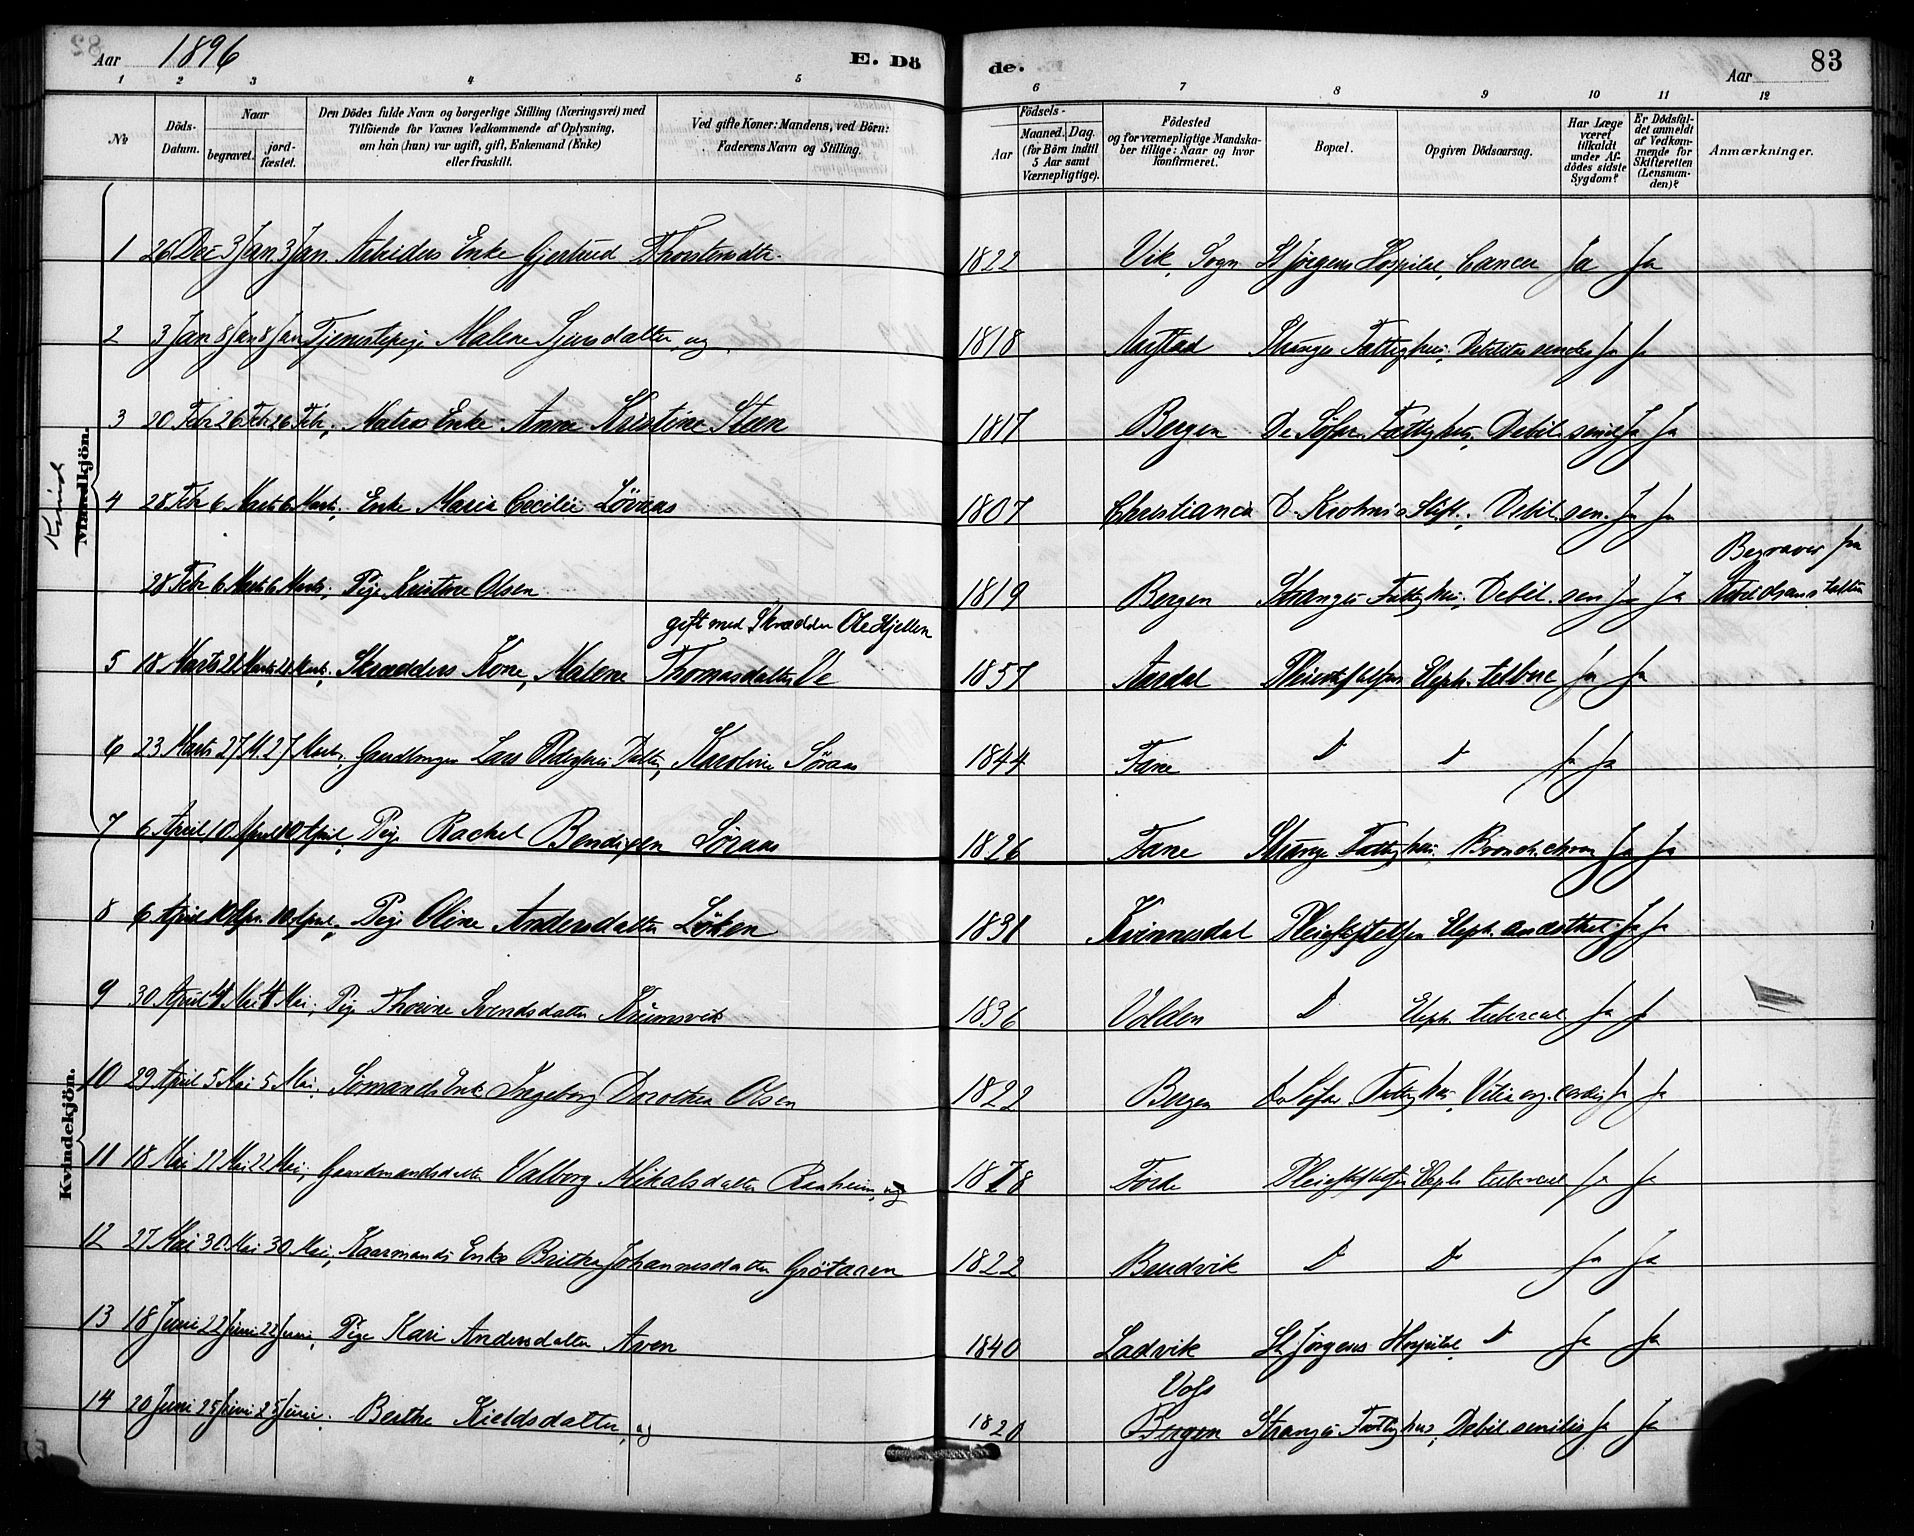 Aar 1896 E. Döde. Aar 83
1 2 3 4 5 6 7 8 9 10 11 12
No
Döds-Datum.
Naar
begravet. jord-fæstet.
Den Dödes fulde Navn og borgerlige Stilling (Næringsvei) med
Tilföiende for Voxnes Vedkommende af Oplysning,
om han (hun) var ugift, gift, Enkemand (Enke)
eller fraskilt.
Ved gifte Koner: Mandens, ved Börn:
Faderens Navn og Stilling.
Födsels-
Aar
Maaned. Dag.
(for Börn indtil
5 Aar samt
Værnepligtige).
Födested
og for værnepligtige Mandska-
ber tillige: Naar og hvor
konfirmeret.
Bopæl.
Opgiven Dödsaarsag.
Har Læge
været
tilkaldt
under Af-
dödes sidste
Sygdom?
Er Dödsfal-
det anmeldt
af Vedkom-
mende for
Skifteretten
(Lensman-
den)?
Anmærkninger.
Kvind
Mandkjön.
1 26 Dec 3 Jan. 3 Jan. Arbeiders Enke Gjertrud Thorstensdtr. 1822 Vik, Sogn St Jørgens Hospital, Cancer Ja Ja
2 3 Jan 8 Jan 8 Jan Tjenestepige Malene Sjursdatter, ug 1818 Stranges Fattighus. Debilitas senilis Ja Ja
3 20 Febr 26 Febr 26 Febr. Enke Anne Kristine Steen 1817 Bergen De Søfar. Fattighus, Debil. senil Ja Ja
4 28 Febr 6 Marts 6 Marts. Enke Maria Cecilie Løvaas 1807 Christiania D. Krohns Stift., Debil. sen. Ja Ja
28 Febr 6 Marts 6 Marts. Pige Kristine Olsen 1819 Bergen Stranges Fattighus, Debil. sen Ja Ja Begravet fra
gift med Skrædder Ole Kjellen
5 18 Marts 21 Marts 21 Marts. Skrædders Kone, Malene Thomasdatter 1857 Aardal Pleiestiftelsen Eleph. tuberc Ja Ja
6 23 Marts 27 M. 27 Marts, Lars Datter, Karoline Søraas 1844 Fane D D Ja Ja
7 6 April 10 April 10 April, Pige Rachel Bendixen Søraas 1826 Fane Strange Fattighus. Bronch. chron Ja Ja
8 6 April 10 Apr. 10 April, Pige Oline Andersdatter Løken 1831 Kvinnesdal Pleiestiftelsen Eleph. anæsthet. Ja Ja
Kvindekjön.
9 30 April 4 Mai 4 Mai, Pige Thorine Svendsdatter 1836 Volden D Eleph. tubercul Ja Ja
10 29 April 5 Mai 5 Mai. Sømands Enke Ingeborg Dorothea Olsen 1822 Bergen De Søfar. Fattighus, Vitia org. cordis Ja Ja
11 18 Mai 22 Mai 22 Mai, Gaardmandsdatter Valborg Mikalsdatter, ug 1878 Førde Pleiestiftelsen Eleph tubercul Ja Ja
12 27 Mai 30 Mai 30 Mai, Kaarmands Enke Britha Johannesdatter 1822 D Do Ja Ja
13 18 Juni 22 Juni 22 Juni, Pige Kari Andersdatter Aven 1840 Ladvik St Jørgens Hospital, D Ja Ja
Voss
14 20 Juni 25 Juni 25 Juni, Berthe Kieldsdatter, ug 1820 Bergen Stranges Fattighus, Debil. senilis Ja Ja